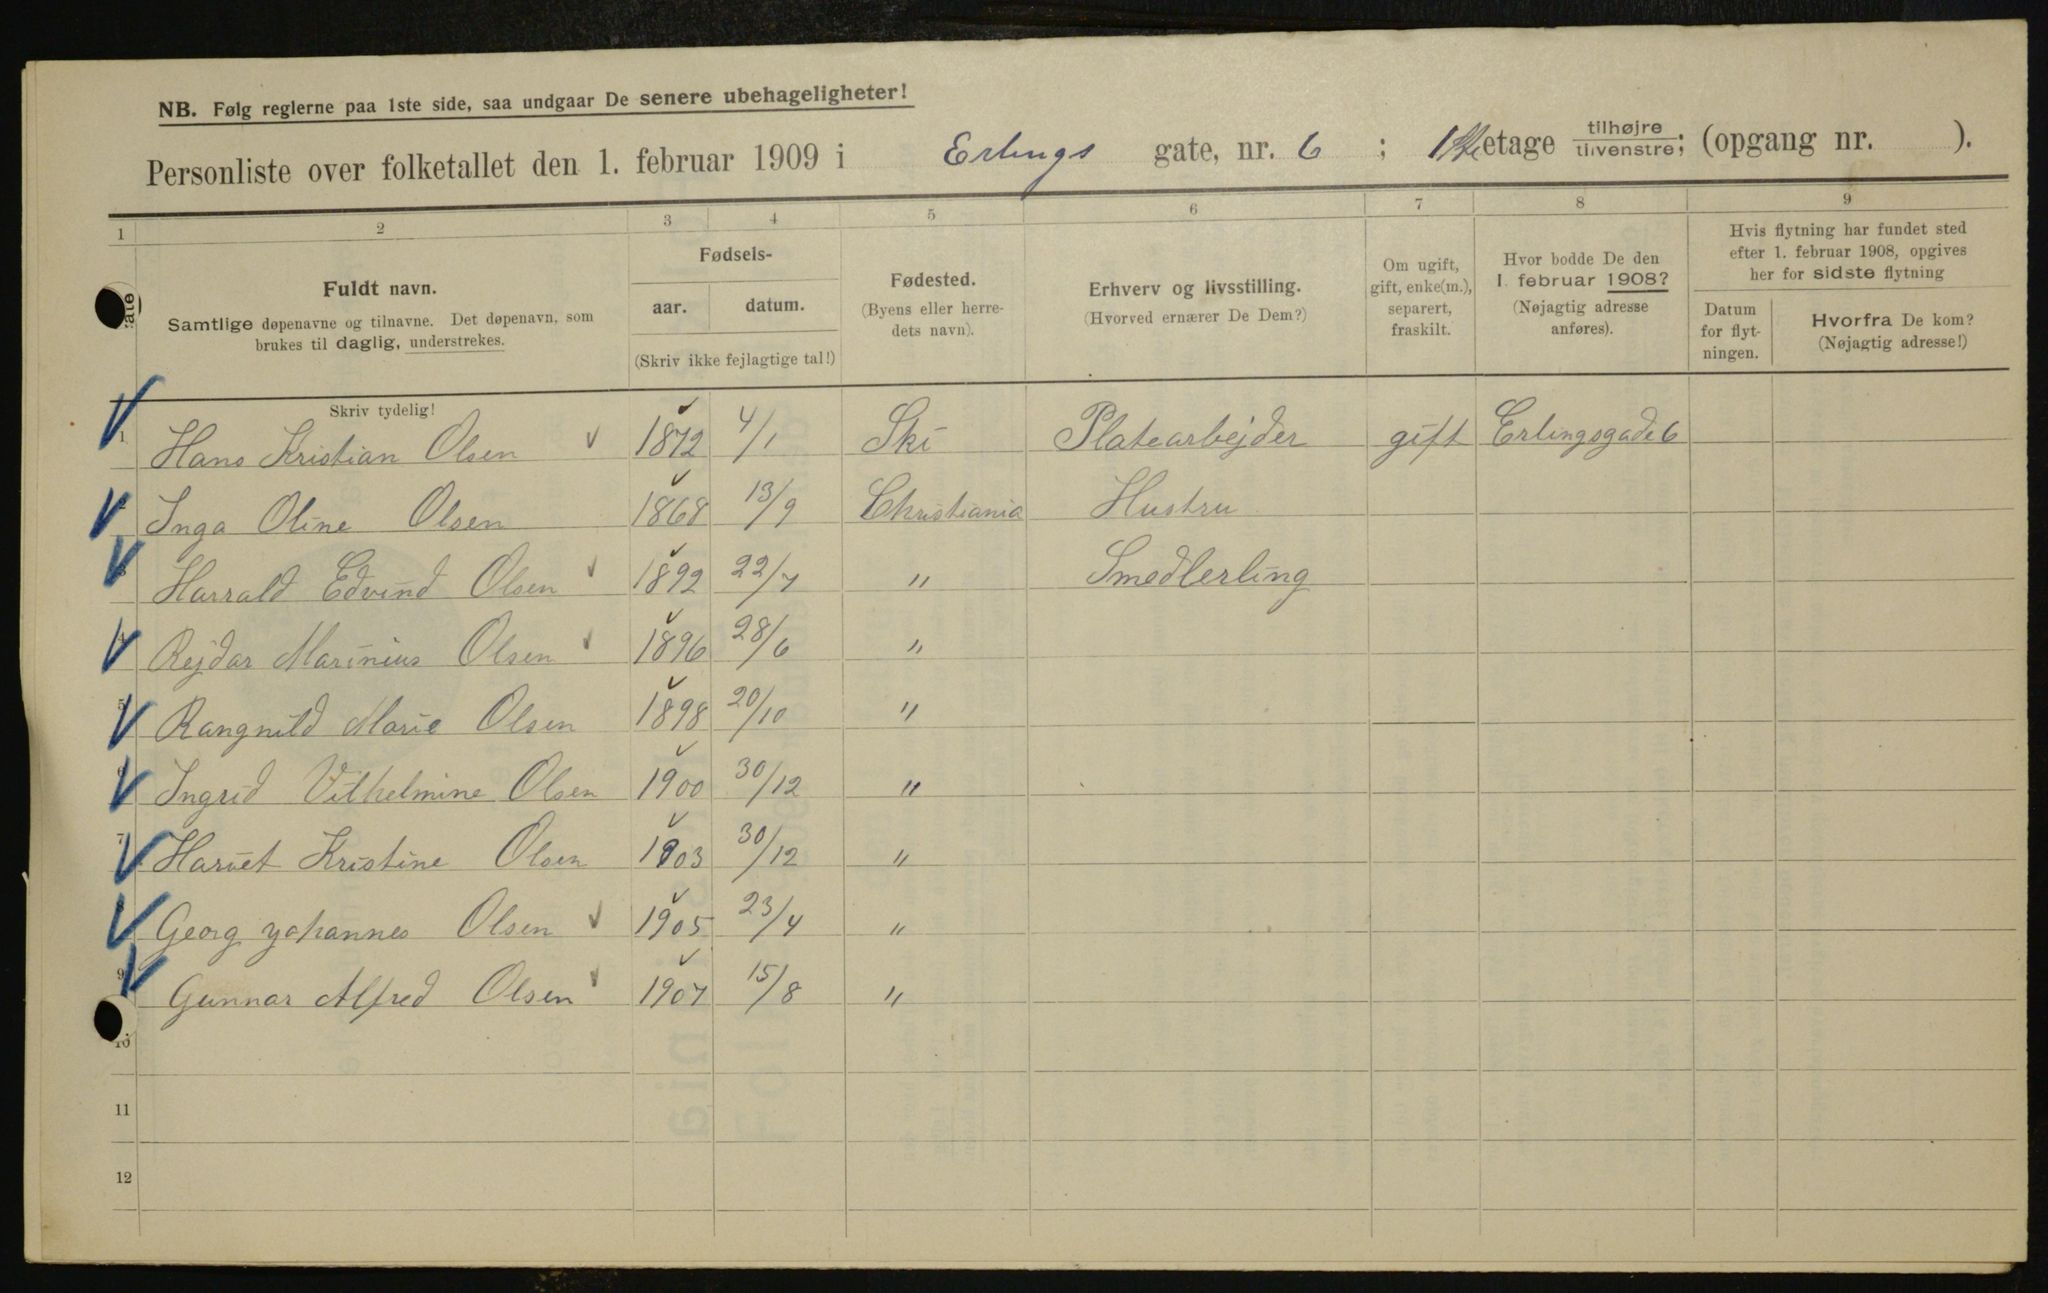 NB. Følg reglerne paa 1ste side, saa undgaar De senere ubehageligheter!
Personliste over folketallet den 1. februar 1909 i Erlings gate, nr. 6 ; 1ste etage tilhøjre tilvenstre; (opgang nr. ).
1 2 3 4 5 6 7 8 9
Fuldt navn.
Samtlige døpenavne og tilnavne. Det døpenavn, som
brukes til daglig, understrekes.
Fødsels-
aar. datum.
(Skriv ikke fejlagtige tal!)
Fødested.
(Byens eller herre-
dets navn).
Erhverv og livsstilling.
(Hvorved ernærer De Dem?)
Om ugift,
gift, enke(m.),
separert,
fraskilt.
Hvor bodde De den
1. februar 1908?
(Nøjagtig adresse
anføres).
Hvis flytning har fundet sted
efter 1. februar 1908, opgives
her for sidste flytning
Datum
for flyt-
ningen.
Hvorfra De kom?
(Nøjagtig adresse!)
Skriv tydelig!
1 Hans Kristian Olsen 1872 4/1 Ski Platearbejder gift Erlingsgade 6
2 Inga Oline Olsen 1868 13/9 Christiania Hustru
3 Harrald Edvind Olsen 1892 22/7 " Smedlerling
4 Rejdar Marinius Olsen 1896 28/6 "
5 Rangnild Marie Olsen 1898 20/10 "
6 Ingrid Vilhelmine Olsen 1900 30/12 "
7 Hariet Kristine Olsen 1903 30/12 "
8 Georg Yohannes Olsen 1905 23/4 "
9 Gunnar Alfred Olsen 1907 15/8 "
10
11
12